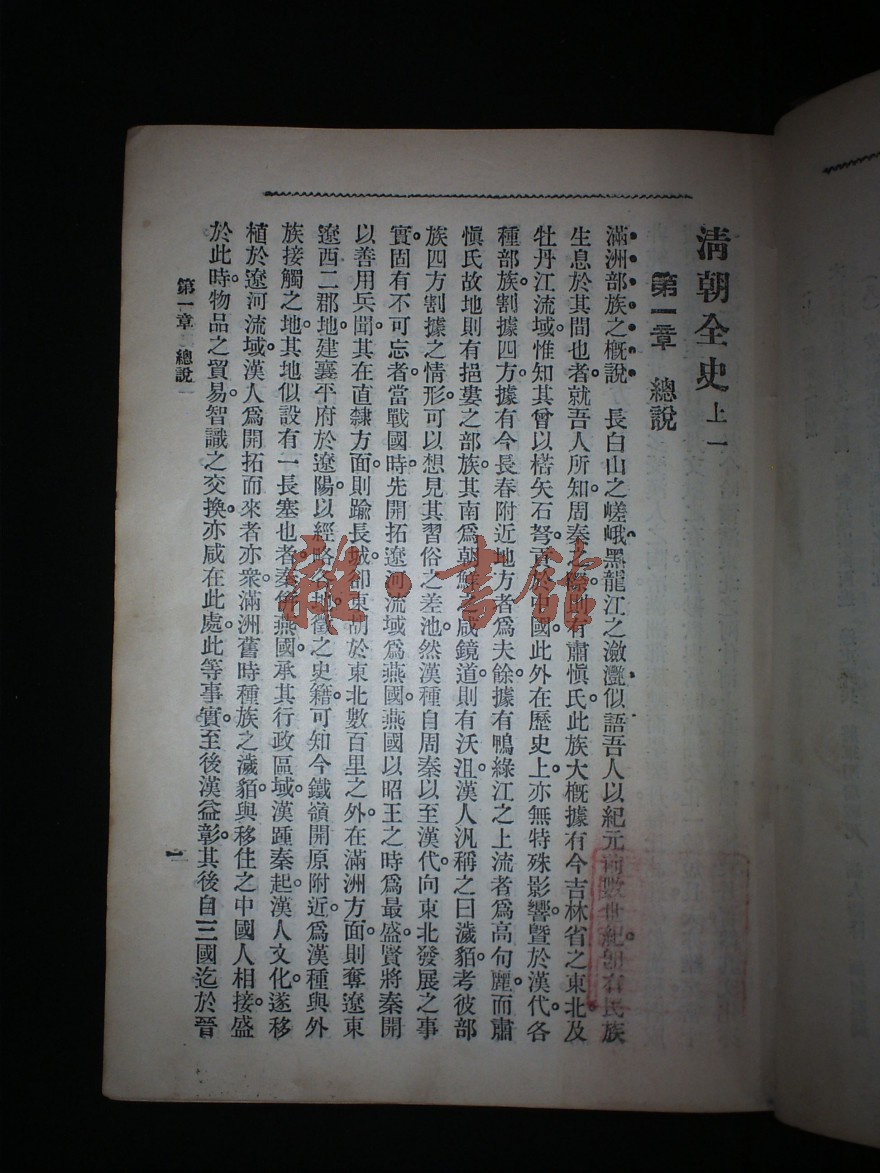 清朝全史 上一
第一章 總說
滿洲部族之概說 長白山之嵯峨黑龍江之瀲灩似語吾人以紀元前數世紀卽有民族
生息於其間也者就吾人所知周秦之際則有肅愼氏此族大槪據有今吉林省之東北及
牡丹江流域惟知其曾以楛矢石砮貢於中國此外在歷史上亦無特殊影響曁於漢代各
種部族割據四方據有今長春附近地方者爲夫餘據有鴨綠江之上流者爲高句麗而肅
愼氏故地則有挹婁之部族其南爲朝鮮之咸鏡道則有沃沮漢人汎稱之曰濊貊考彼部
族四方割據之情形可以想見其習俗之差池然漢種自周秦以至漢代向東北發展之事
實固有不可忘者當戰國時先開拓遼河流域爲燕國燕國以昭王之時爲最盛賢將秦開
以善用兵聞其在直隸方面則踰長城卻東胡於東北數百里之外在滿洲方面則奪遼東
遼西二郡地建襄平府於遼陽以經略各地徵之史籍可知今鐵嶺開原附近爲漢種與外
族接觸之地其地似設有一長塞也者秦倂燕國承其行政區域漢踵秦起漢人文化遂移
植於遼河流域漢人爲開拓而來者亦衆滿洲舊時種族之濊貊與移住之中國人相接盛
於此時物品之貿易智識之交換亦咸在此處此等事實至後漢益彰其後自三國迄於晉
第一章 總說
一
雜·書館